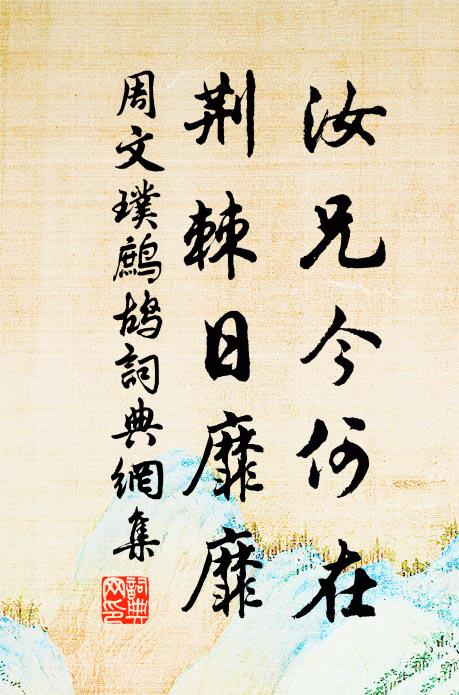 汝兄今何在
荆棘日靡靡
周文璞鹧鸪詞典網集
詞典网印